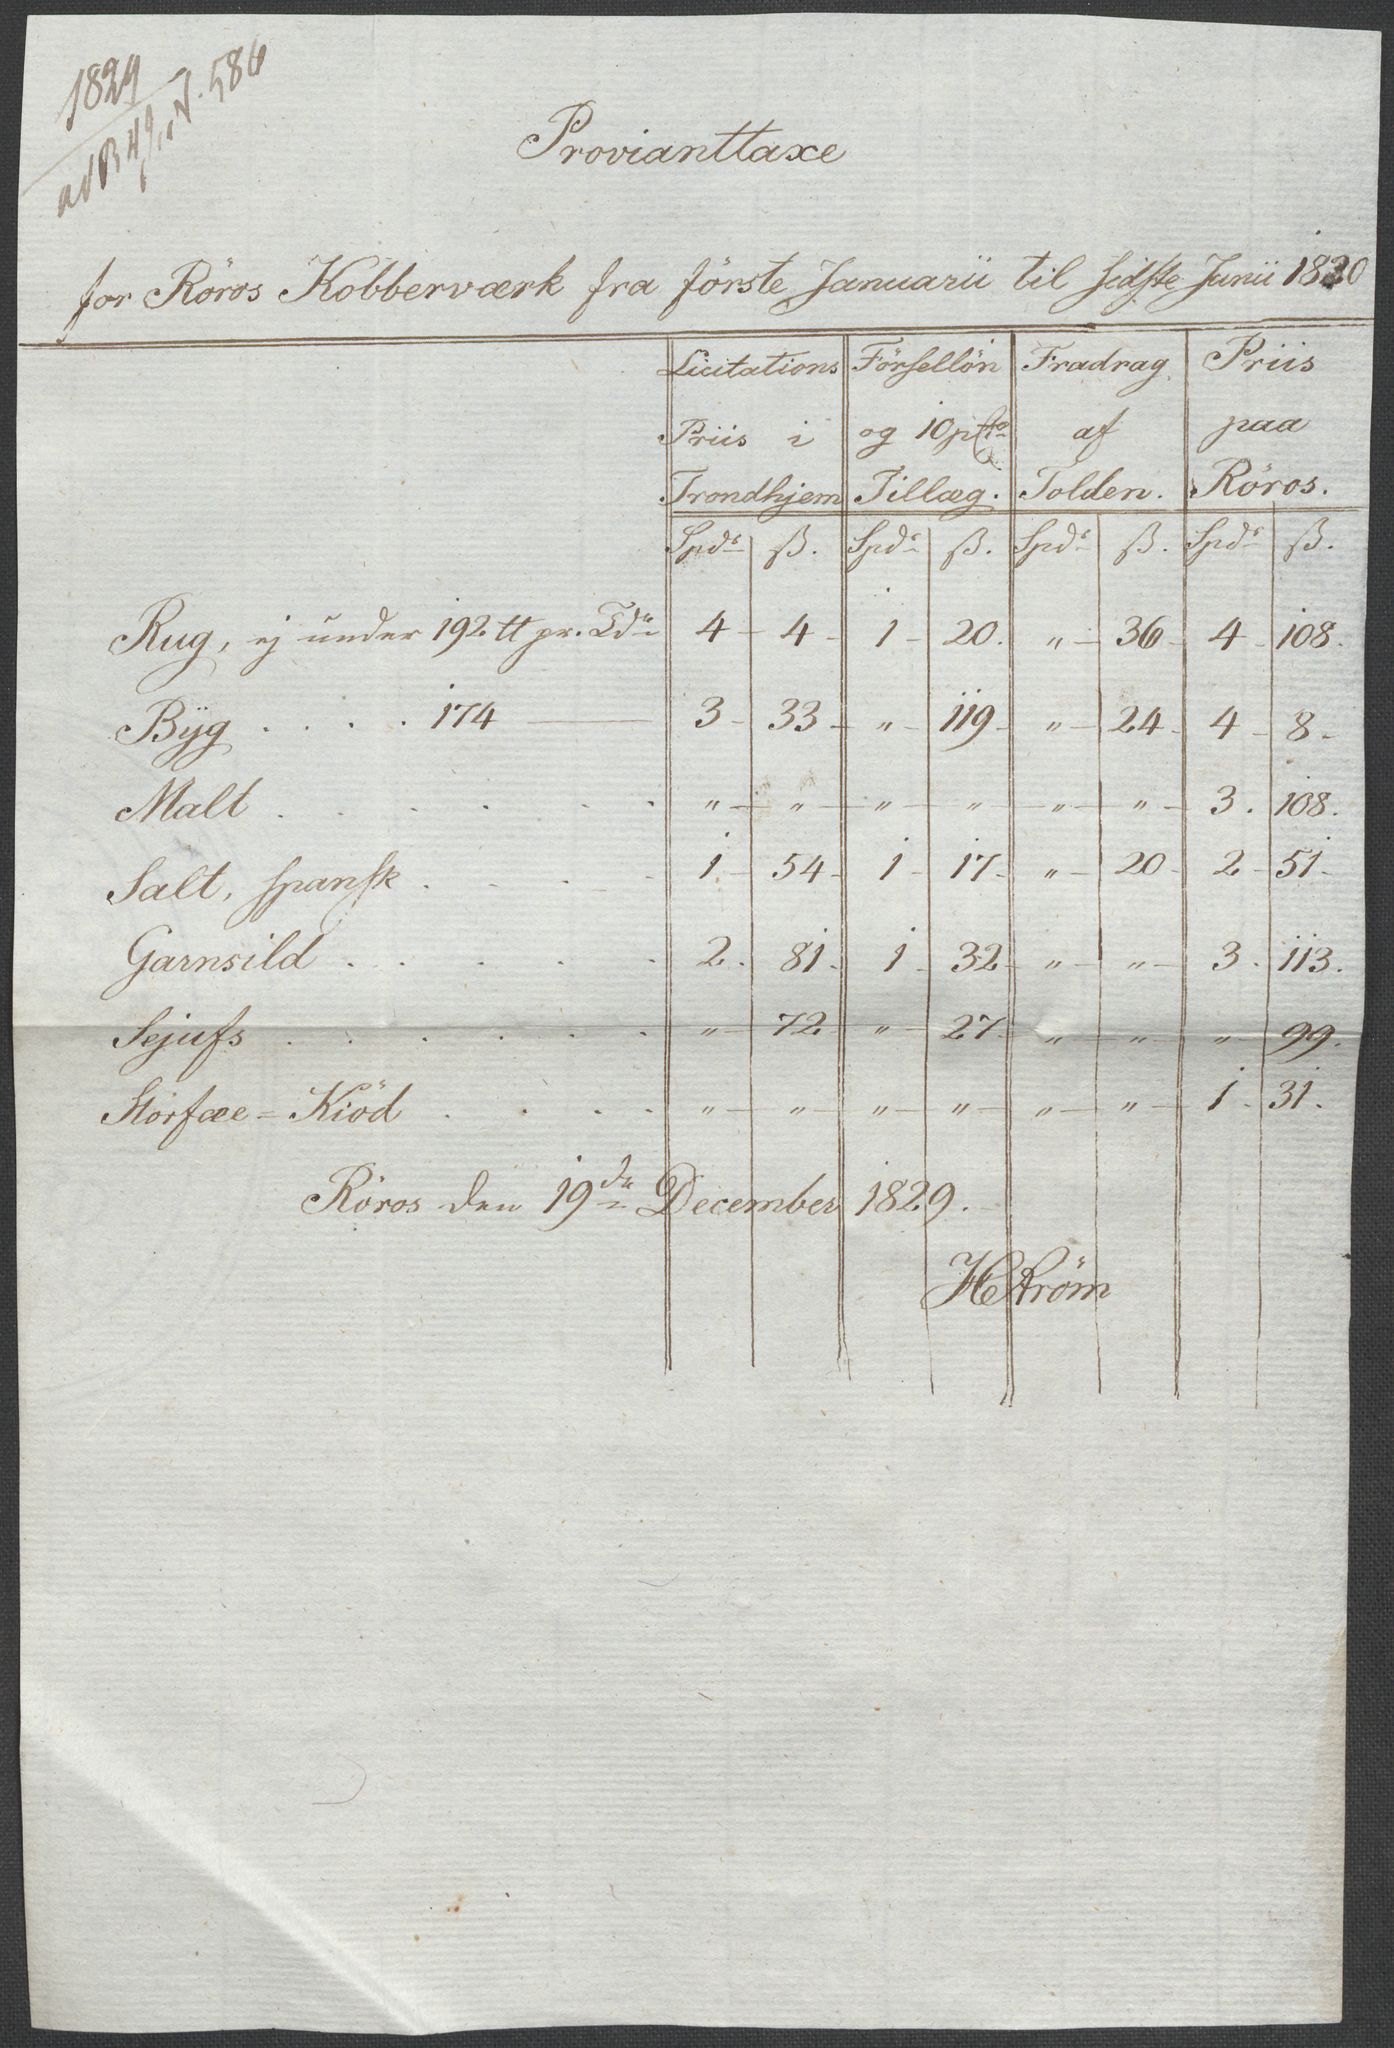 1829
ad B 49 N. 586
Provianttaxe
for Röros Kobberværk fra förste Januarii til sidste Junii 1830
Licitations Priis i Trondhjem | Försellön og 10 pCto Tillæg. | Fradrag af Tolden. | Priis paa Röros.
Spdr ß. | Spdr ß. | Spdr ß. | Spdr ß.
Rug, ej under 192 tt pr. Tde 4 - 4 - 1 - 20. „ - 36 - 4 - 108.
Byg . . . . 174 — 3 - 33 - „ - 119 - „ - 24 - 4 - 8 -
Malt . . . . . . „ - „ - „ - „ - „ - „ - 3 . 108.
Salt, spansk . . . . 1 - 54 - 1 - 17 - „ - 20 - 2 - 51 -
Garnsild . . . . . 2 . 81 . 1 - 32 - „ - „ - 3 . 113.
Sejufs . . . . . . „ - 72 - „ - 27 - „ - „ - „ - 99.
Storfæe=Kiöd . . . . „ - „ - „ - „ - „ - „ - 1 - 31.
Röros den 19de December 1829.
HStröm